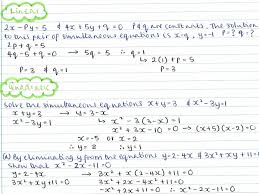 Linear
2x - Py = 5 & 4x + 5y + q = 0 P & q are constants. The solution
to this pair of simultaneous equations is x = q, y = 1 P = ? q = ?
2p + q = 5
4q - 5 + q = 0 → 5q = 5 ∴ q = 1
→ 2(1) + P = 5
P = 3 & q = 1 P = 3
Quadratic
Solve the simultaneous equations x + y = 3 & x² - 3y = 1
x + y = 3 → y = 3 - x
x² - 3y = 1 → x² - 3(3 - x) = 1
x² + 3x - 10 = 0 → (x + 5)(x - 2) = 0
x = -5 or x = 2
∴ y = 8 ∴ y = 1
(a) By eliminating y from the equations y = 2 - 4x & 3x² + xy + 11 =
show that x² - 2x - 11 = 0
y = 2 - 4x → 3x² + x(2 - 4x) + 11 = 0
3x² + xy + 11 = 0 3x² + 2x - 4x² + 11 = 0